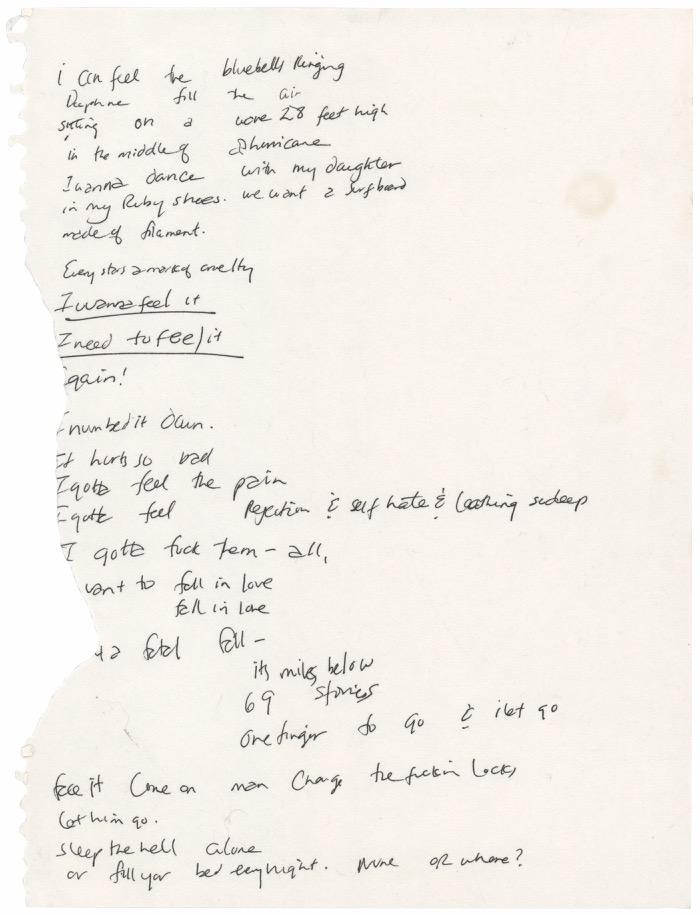 i can feel the bluebells Ringing
Daphne fill the air
sitting on a wave 28 feet high
in the middle of a hurricane
I wanna dance with my daughter
in my Ruby shoes. we want a surfboard
made of filament.
Every stars a mark of cruelty
I wanna feel it
I need to feel it
again!
I numbed it down.
It hurts so bad
I gotta feel the pain
I gotta feel Rejection & self hate & loathing so deep
I gotta fuck them - all,
want to fall in love
fall in love
a fatal fall -
its miles below
69 stories
one finger to go & i let go
face it Come on man Change the fuckin Locks
Let him go.
sleep the hell alone
or fill your bed every night. Nune or where?